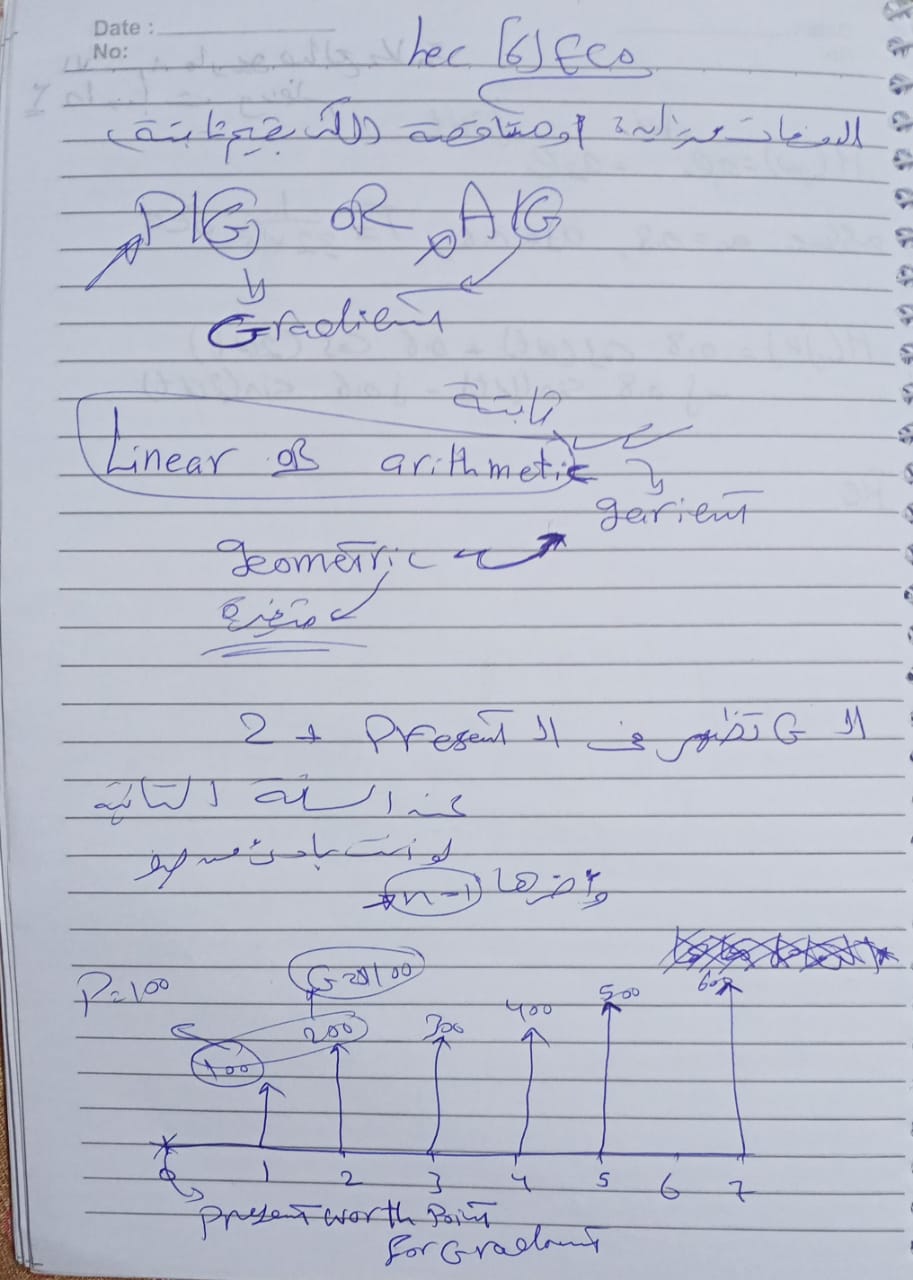 Date :
No:
Lec [6] Eco
الدفعات متزايدة او متناقصة (لكن بقيم ثابتة)
P/G OR A/G
Gradient
ثابتة
Linear OR arithmetic
garient
geometric
متغيرة
ال G تظهر في ال Present + 2
عند السنة الثانية
لو انت بادئ من صفر
واخرها n-1
P=100
G=100
100 200 300 400 500 600
1 2 3 4 5 6 7
Present worth Point
For Gradient